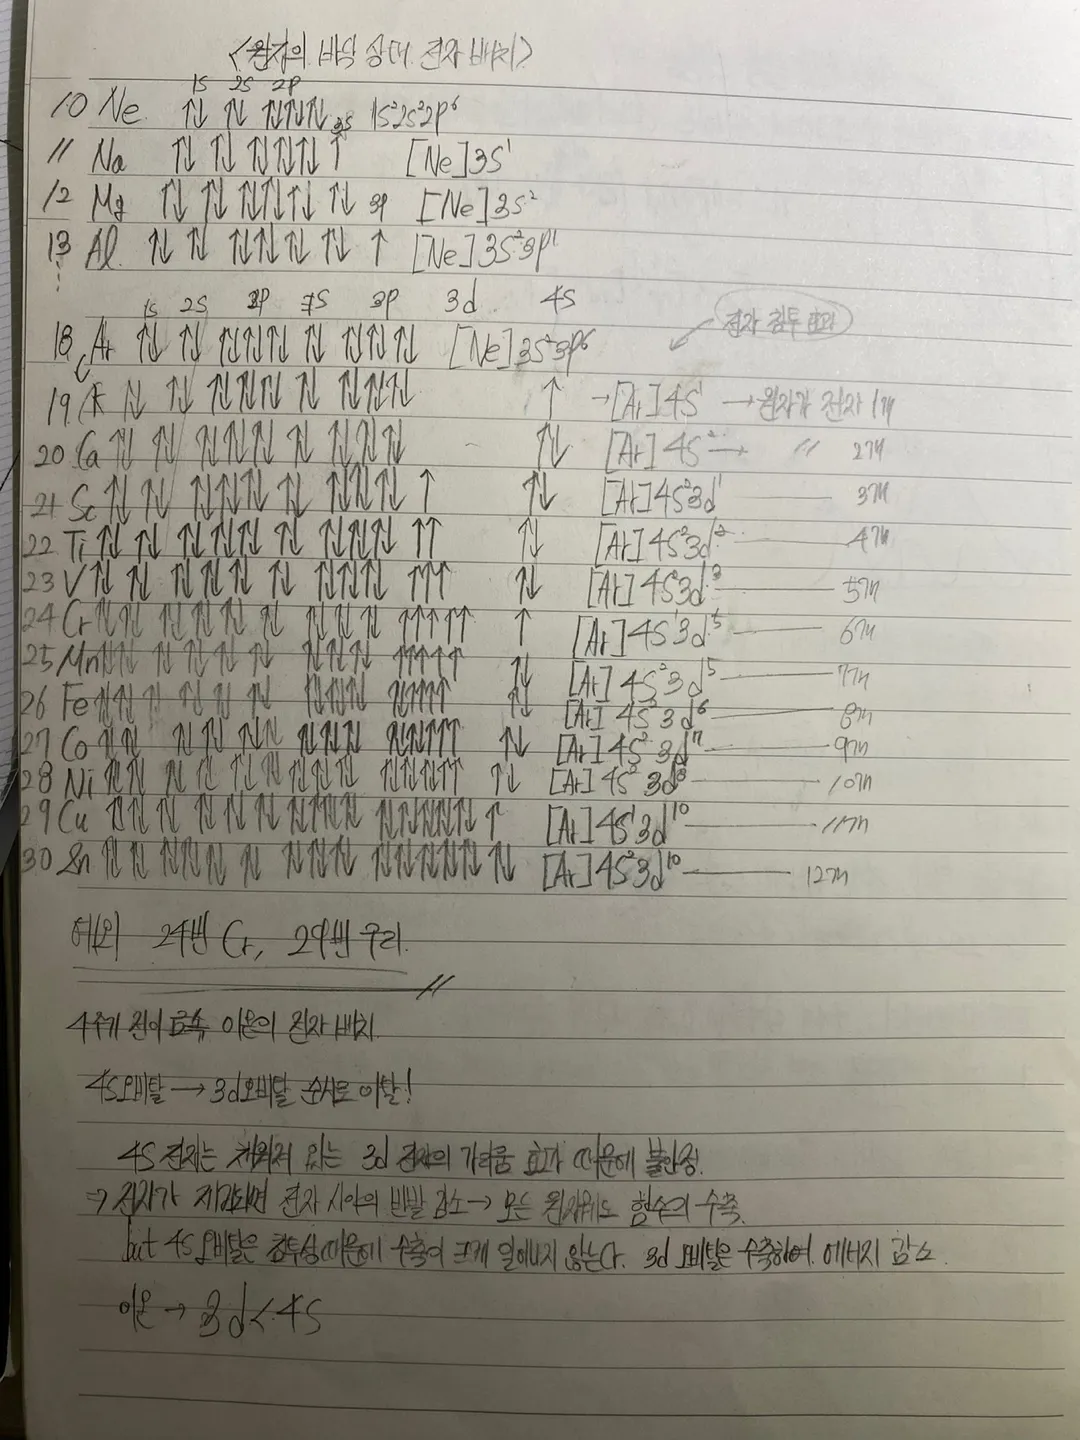 <원자의 바닥 상태 전자 배치>
1s 2s 2p
10 Ne ↑↓ ↑↓ ↑↓↑↓↑↓ 3s 1s²2s²2p⁶
11 Na ↑↓ ↑↓ ↑↓↑↓↑↓ ↑ [Ne]3s¹
12 Mg ↑↓ ↑↓ ↑↓↑↓↑↓ ↑↓ 3p [Ne]3s²
13 Al ↑↓ ↑↓ ↑↓↑↓↑↓ ↑↓ ↑ [Ne]3s²3p¹
⋮
1s 2s 2p 3s 3p 3d 4s
전자 침투 효과
18 Ar ↑↓ ↑↓ ↑↓↑↓↑↓ ↑↓ ↑↓↑↓↑↓ [Ne]3s²3p⁶
19 K ↑↓ ↑↓ ↑↓↑↓↑↓ ↑↓ ↑↓↑↓↑↓ ↑ →[Ar]4s¹ → 원자가 전자 1개
20 Ca ↑↓ ↑↓ ↑↓↑↓↑↓ ↑↓ ↑↓↑↓↑↓ ↑↓ [Ar]4s² → 〃 2개
21 Sc ↑↓ ↑↓ ↑↓↑↓↑↓ ↑↓ ↑↓↑↓↑↓ ↑ ↑↓ [Ar]4s²3d¹ — 3개
22 Ti ↑↓ ↑↓ ↑↓↑↓↑↓ ↑↓ ↑↓↑↓↑↓ ↑↑ ↑↓ [Ar]4s²3d² — 4개
23 V ↑↓ ↑↓ ↑↓↑↓↑↓ ↑↓ ↑↓↑↓↑↓ ↑↑↑ ↑↓ [Ar]4s²3d³ — 5개
24 Cr ↑↓ ↑↓ ↑↓↑↓↑↓ ↑↓ ↑↓↑↓↑↓ ↑↑↑↑↑ ↑ [Ar]4s¹3d⁵ — 6개
25 Mn ↑↓ ↑↓ ↑↓↑↓↑↓ ↑↓ ↑↓↑↓↑↓ ↑↑↑↑↑ ↑↓ [Ar]4s²3d⁵ — 7개
26 Fe ↑↓ ↑↓ ↑↓↑↓↑↓ ↑↓ ↑↓↑↓↑↓ ↑↓↑↑↑↑ ↑↓ [Ar]4s²3d⁶ — 8개
27 Co ↑↓ ↑↓ ↑↓↑↓↑↓ ↑↓ ↑↓↑↓↑↓ ↑↓↑↓↑↑↑ ↑↓ [Ar]4s²3d⁷ — 9개
28 Ni ↑↓ ↑↓ ↑↓↑↓↑↓ ↑↓ ↑↓↑↓↑↓ ↑↓↑↓↑↓↑↑ ↑↓ [Ar]4s²3d⁸ — 10개
29 Cu ↑↓ ↑↓ ↑↓↑↓↑↓ ↑↓ ↑↓↑↓↑↓ ↑↓↑↓↑↓↑↓↑↓ ↑ [Ar]4s¹3d¹⁰ — 11개
30 Zn ↑↓ ↑↓ ↑↓↑↓↑↓ ↑↓ ↑↓↑↓↑↓ ↑↓↑↓↑↓↑↓↑↓ ↑↓ [Ar]4s²3d¹⁰ — 12개
예외 24번 Cr, 29번 구리.
4주기 전이 금속 이온의 전자 배치.
4s오비탈 → 3d오비탈 순서로 이탈!
4s 전자는 채워져 있는 3d 전자의 가리움 효과 때문에 불안정.
⇒ 전자가 제거되면 전자 사이의 반발 감소 → 모든 원자궤도 함수의 수축.
but 4s 오비탈은 침투성 때문에 수축이 크게 일어나지 않는다. 3d 오비탈은 수축하여 에너지 감소.
이온 → 3d < 4s